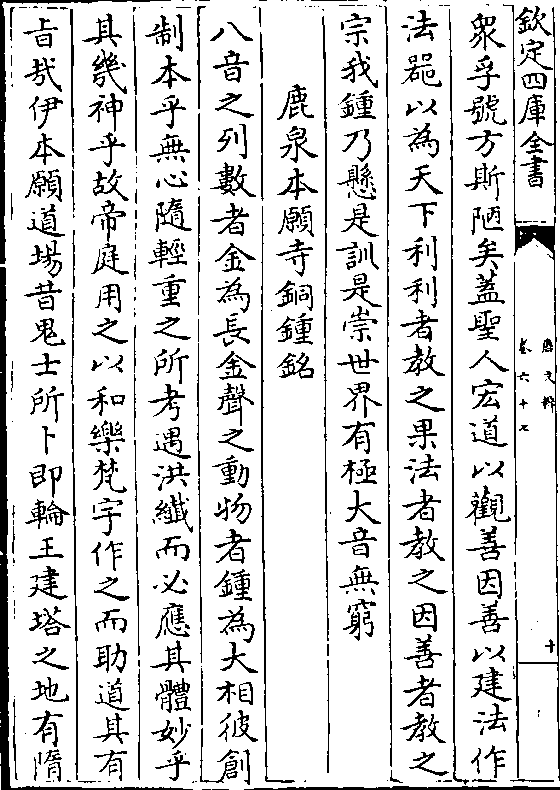 欽定四庫全書
唐文粹
卷六十七
十
衆孚號方斯陋矣蓋聖人宏道以觀善因善以建法作
法器以為天下利利者教之果法者教之因善者教之
宗我鍾乃懸是訓是崇世界有極大音無窮
鹿泉本願寺銅鍾銘
八音之列數者金為長金聲之動物者鍾為大相彼創
制本乎無心隨輕重之所考遇洪纎而必應其體妙乎
其幾神乎故帝庭用之以和樂梵宇作之而助道其有
旨哉伊本願道場昔鬼士所卜即輪王建塔之地有隋